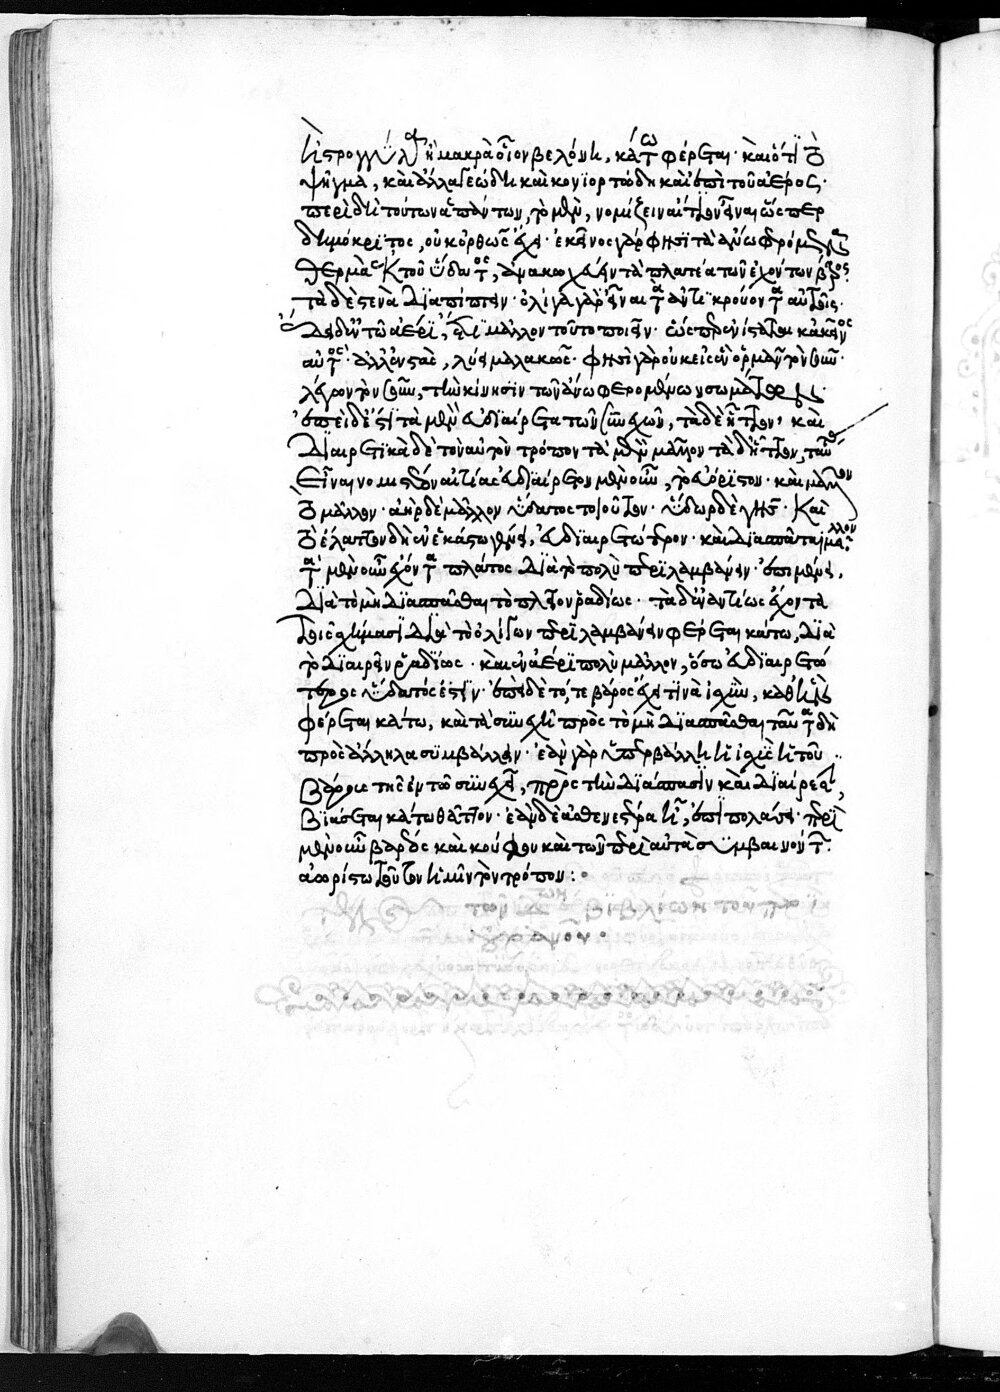 ἢ στρογγύλα ἢ μακρὰ οἷον βελόνη, κάτω φέρεται· καὶ ὅτι τὸ
ψῆγμα, καὶ ἄλλα γεώδη καὶ κονιορτώδη καὶ ἐπὶ τοῦ ἀέρος·
περὶ δὴ τούτων ἁπάντων, τὸ μὲν, νομίζειν αἴτιον εἶναι ὥσπερ
δημόκριτος, οὐκ ὀρθῶς ἔχει· ἐκεῖνος γάρ φησι τὰ ἄνω φερόμενα
θερμὰ ἐκ τοῦ ὕδατος, ἀνακωχεύειν τὰ πλατέα τῶν ἐχόντων βάρος·
τὰ δὲ στενὰ διαπίπτειν· ὀλίγα γὰρ εἶναι τὰ ἀντικρούοντα αὐτοῖς·
ἔδει δ' ἐν τῷ ἀέρι, ἔτι μᾶλλον τοῦτο ποιεῖν· ὥσπερ ἐνίσταται κἀκεῖνος
αὐτός· ἀλλ' ἐνστὰς, λύει μαλακῶς· φησὶ γὰρ οὐκ εἰς ἓν ὁρμᾶν τὸν σοῦν·
λέγων τὸν σοῦν, τὴν κίνησιν τῶν ἄνω φερομένων σωμάτων·
ἐπεὶ δέ ἐστι τὰ μὲν εὐδιαίρετα τῶν συνεχῶν, τὰ δὲ ἧττον, καὶ
διαιρετικὰ δὲ τὸν αὐτὸν τρόπον τὰ μὲν μᾶλλον τὰ δ' ἧττον, ταύτας
εἶναι νομιστέον αἰτίας εὐδιαίρετον μὲν οὖν, τὸ εὐόριστον· καὶ μᾶλλον
τὸ μᾶλλον· ἀὴρ δὲ μᾶλλον ὕδατος τοιοῦτον· ὕδωρ δὲ γῆς· καὶ
τὸ ἔλαττον δὴ ἐν ἑκάστῳ γένει, εὐδιαιρετώτερον· καὶ διασπᾶται μᾶλλον
τὰ μὲν οὖν ἔχοντα πλάτος διὰ τὸ πολὺ περιλαμβάνειν ἐπιμένει,
διὰ τὸ μὴ διασπᾶσθαι τὸ πλεῖον ῥαδίως· τὰ δ' ἐναντίως ἔχοντα
τοῖς σχήμασι διὰ τὸ ὀλίγον περιλαμβάνειν φέρεται κάτω, διὰ
τὸ διαιρεῖν ῥαδίως· καὶ ἐν ἀέρι πολὺ μᾶλλον, ὅσῳ εὐδιαιρετώ
τερος ὕδατός ἐστιν· ἐπεὶ δὲ τό, τε βάρος ἔχει τινὰ ἰσχὺν, καθ' ἣν
φέρεται κάτω, καὶ τὰ συνεχῆ πρὸς τὸ μὴ διασπᾶσθαι, ταῦτα δὴ
πρὸς ἄλληλα συμβάλλειν· ἐὰν γὰρ ὑπερβάλλῃ ἡ ἰσχὺς ἡ τοῦ
βάρους τῆς ἐν τῷ συνεχεῖ, πρὸς τὴν διάσπασιν καὶ διαίρεσιν,
βιάσεται κάτω θᾶττον· ἐὰν δὲ ἀσθενεστέρα ᾖ, ἐπιπολάσει· περὶ
μὲν οὖν βαρέος καὶ κούφου καὶ τῶν περὶ αὐτὰ συμβαινόντων
διωρίσθω τοῦτον ἡμῖν τὸν τρόπον: